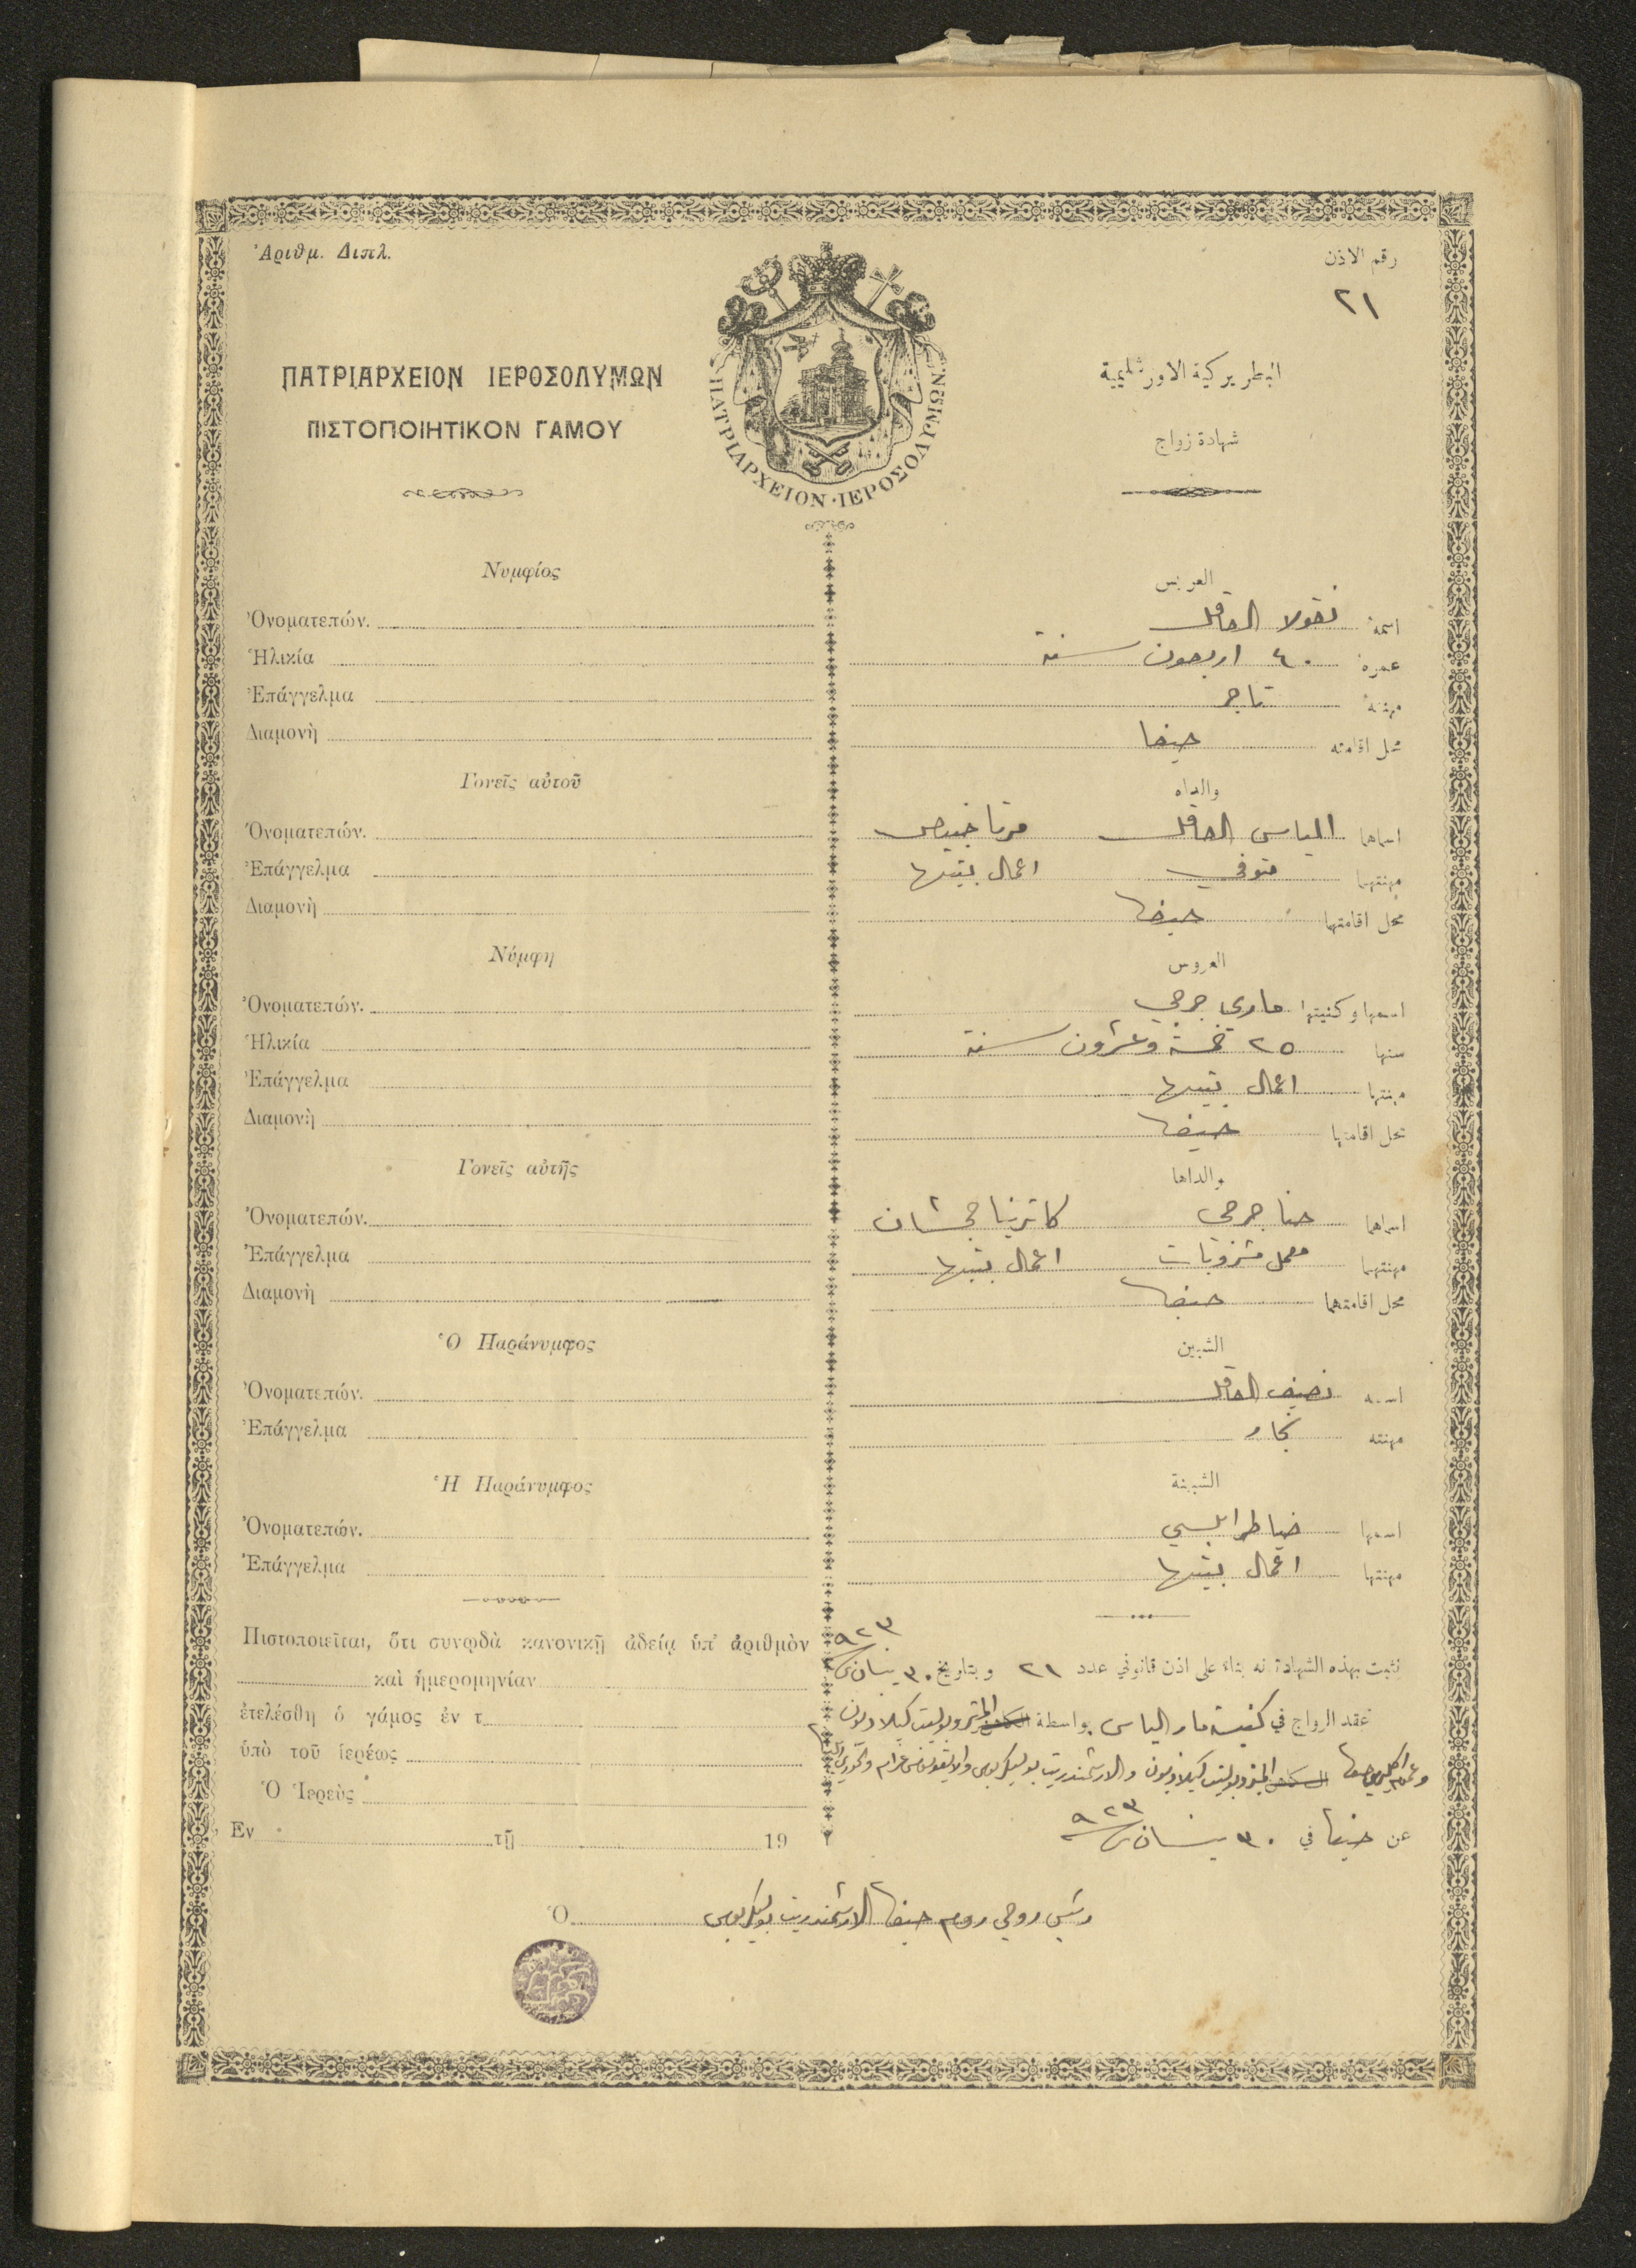 Ἀριθμ. Διπλ.
رقم الاذن
٢١
ΠΑΤΡΙΑΡΧΕΙΟΝ ΙΕΡΟΣΟΛΥΜΩΝ
ΠΙΣΤΟΠΟΙΗΤΙΚΟΝ ΓΑΜΟΥ
ΠΑΤΡΙΑΡΧΕΙΟΝ·ΙΕΡΟΣΟΛΥΜΩΝ
البطريركية الاورشليمية
شهادة زواج
Νυμφίος
Ὀνοματεπών.
Ἡλικία
Ἐπάγγελμα
Διαμονὴ
Γονεῖς αὐτοῦ
Ὀνοματεπών.
Ἐπάγγελμα
Διαμονὴ
Νύμφη
Ὀνοματεπών.
Ἡλικία
Ἐπάγγελμα
Διαμονὴ
Γονεῖς αὐτῆς
Ὀνοματεπών.
Ἐπάγγελμα
Διαμονὴ
Ὁ Παράνυμφος
Ὀνοματεπών.
Ἐπάγγελμα
Ἡ Παράνυμφος
Ὀνοματεπών.
Ἐπάγγελμα
Πιστοποιεῖται, ὅτι συνῳδὰ κανονικῇ ἀδείᾳ ὑπ' ἀριθμὸν
καὶ ἡμερομηνίαν
ἐτελέσθη ὁ γάμος ἐν τ
ὑπὸ τοῦ ἱερέως
Ὁ Ἱερεὺς
Ἐν τῇ 19
العريس
اسمه نقولا
عمره ٤٠ اربعون سنة
مهنته تاجر
محل اقامته حيفا
والداه
اسماهما الياس مرتا
مهنتهما متوفي اعمال بيتها
محل اقامتهما حيفا
العروس
اسمها وكنيتها ماري جرجي
سنها ٢٥ خمسة وعشرون سنة
مهنتها اعمال بيتها
محل اقامتها حيفا
والداها
اسماهما حنا جرجي كاترينا
مهنتهما معمل مشروبات اعمال بيتها
محل اقامتهما حيفا
الشبين
اسمه نصيف
مهنته نجار
الشبينة
اسمها ضيا طرابلسي
مهنتها اعمال بيتها
نثبت بهذه الشهادة انه بناء على اذن قانوني عدد ٢١ وبتاريخ ٣٠ نيسان ٩٢٣
عقد الزواج في كنيسة مار الياس بواسطة المتروبوليت كيلاديون
المتروبوليت كيلاديون والارشمندريت
عن حيفا في ٣٠ نيسان ٩٢٣
Ὁ رئيس روحي روم حيفا الارشمندريت